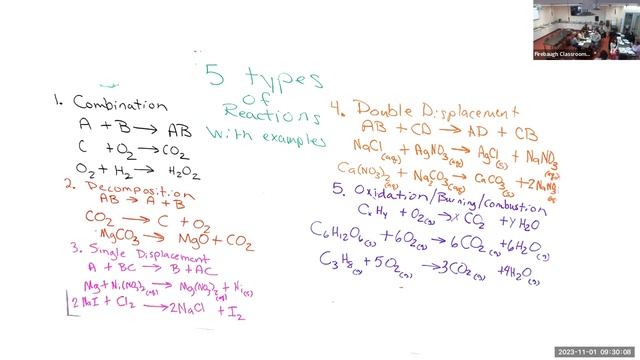 5 types
of
Reactions
with examples
1. Combination
A + B → AB
C + O₂ → CO₂
O₂ + H₂ → H₂O₂
2. Decomposition
AB → A + B
CO₂ → C + O₂
MgCO₃ → MgO + CO₂
3. Single Displacement
A + BC → B + AC
Mg + Ni(NO₃)₂ (aq) → Mg(NO₃)₂ (aq) + Ni(s)
2NaI + Cl₂ → 2NaCl + I₂
4. Double Displacement
AB + CD → AD + CB
NaCl (aq) + AgNO₃ (aq) → AgCl (s) + NaNO₃ (aq)
Ca(NO₃)₂ (aq) + Na₂CO₃ (aq) → CaCO₃ (s) + 2NaNO₃ aq
5. Oxidation/Burning/combustion
CₓHᵧ + O₂(g) → x CO₂ + y H₂O
C₆H₁₂O₆(s) + 6O₂(g) → 6CO₂(g) + 6H₂O(g)
C₃H₈(g) + 5O₂(g) → 3CO₂(g) + 4H₂O(g)
Firebaugh Classroom...
2023-11-01 09:30:08